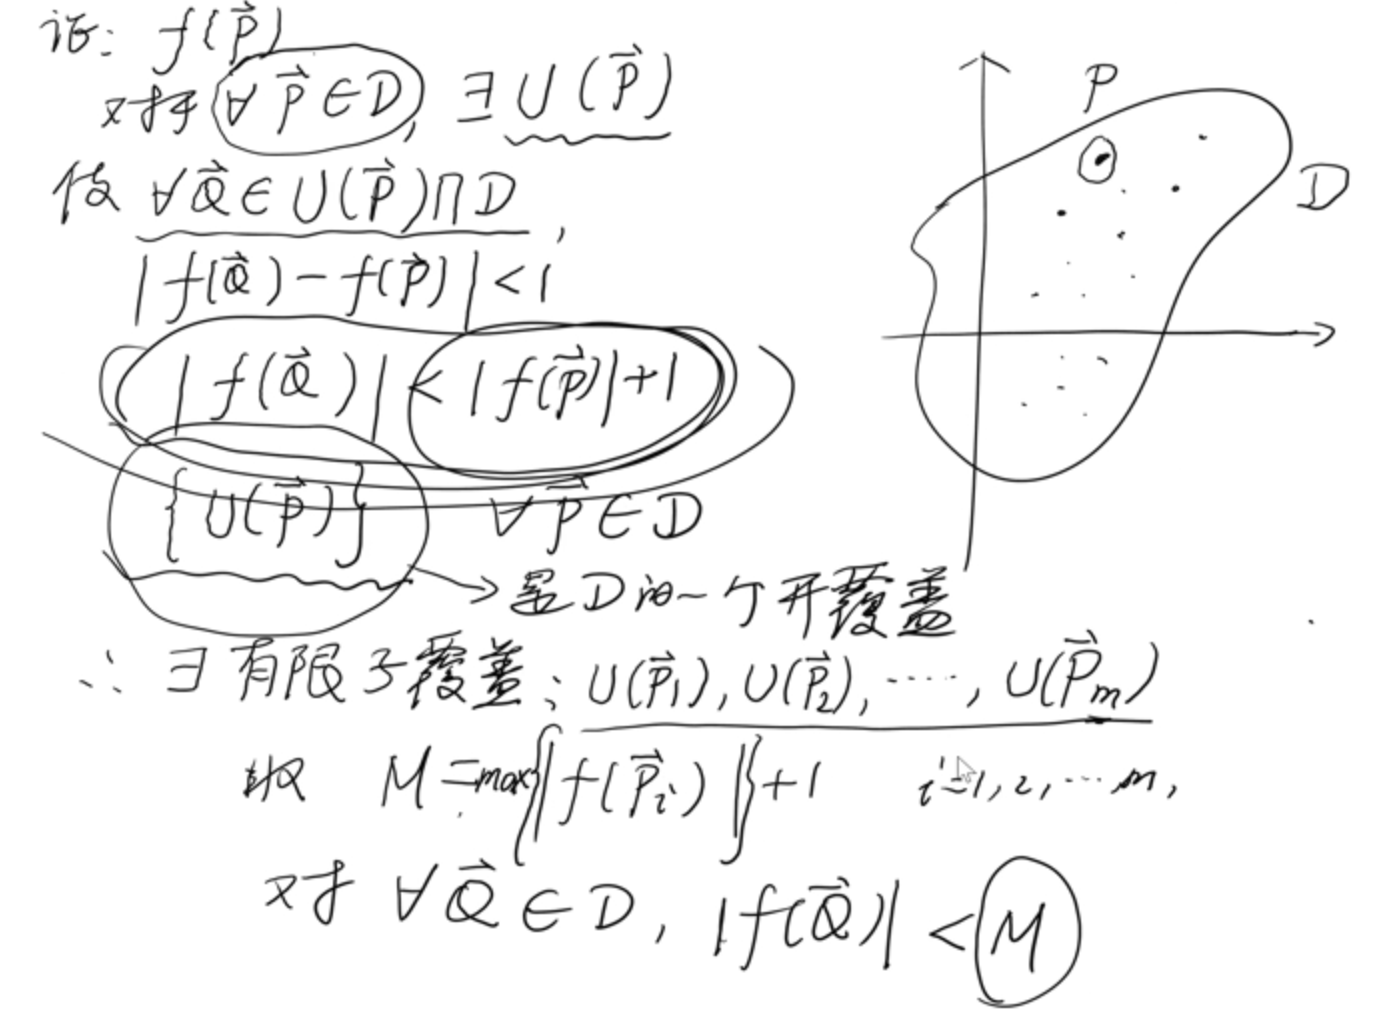 证: f(P⃗)
对于 ∀P⃗∈D, ∃ U(P⃗)
使 ∀Q⃗∈U(P⃗)∩D,
|f(Q⃗)-f(P⃗)|<1
|f(Q⃗)|<|f(P⃗)|+1
{U(P⃗)} ∀P⃗∈D
→是D的一个开覆盖
∴ ∃有限子覆盖: U(P⃗₁), U(P⃗₂), ……, U(P⃗ₘ)
取 M=max{|f(P⃗ᵢ)|}+1 i=1,2,…m,
对 ∀Q⃗∈D, |f(Q⃗)|<M
P
D